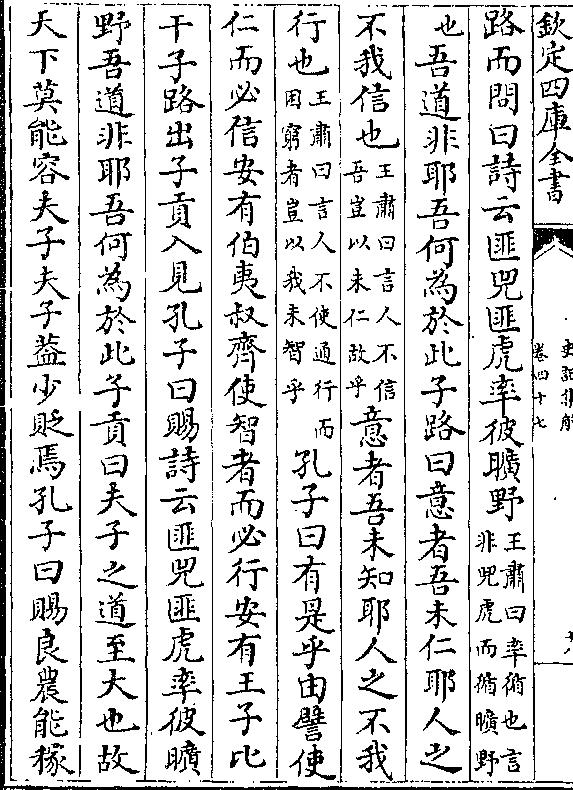 欽定四庫全書
史記集解
卷四十七
十八
路而問曰詩云匪兕匪虎率彼曠野王肅曰率循也言非兕虎而循曠野
也吾道非耶吾何為於此子路曰意者吾未仁耶人之
不我信也王肅曰言人不信吾豈以未仁故乎意者吾未知耶人之不我
行也王肅曰言人不使通行而困窮者豈以我未智乎孔子曰有是乎由譬使
仁而必信安有伯夷叔齊使智者而必行安有王子比
干子路出子貢入見孔子曰賜詩云匪兕匪虎率彼曠
野吾道非耶吾何為於此子貢曰夫子之道至大也故
天下莫能容夫子夫子蓋少貶焉孔子曰賜良農能稼